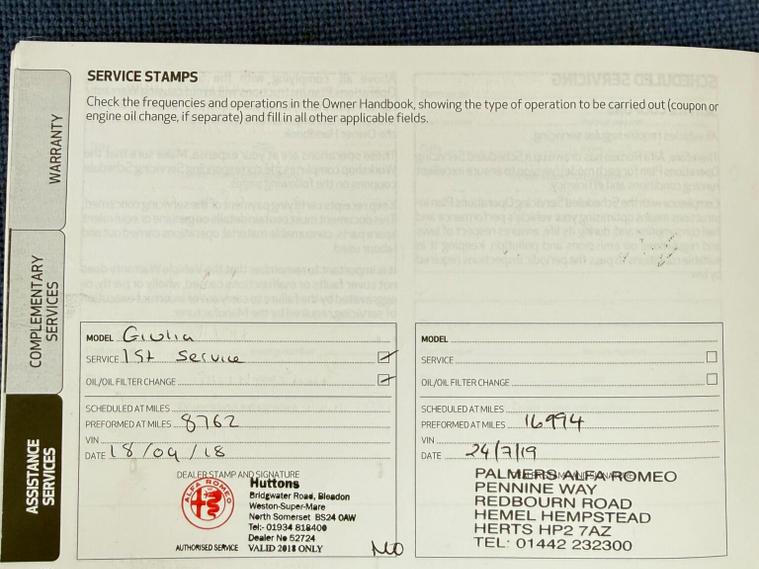 SERVICE STAMPS
Check the frequencies and operations in the Owner Handbook, showing the type of operation to be carried out (coupon or
engine oil change, if separate) and fill in all other applicable fields.
WARRANTY
COMPLEMENTARY
SERVICES
ASSISTANCE
SERVICES
MODEL Giulia
SERVICE 1st Service
OIL/OIL FILTER CHANGE
SCHEDULED AT MILES
PREFORMED AT MILES 8762
VIN
DATE 18/09/18
DEALER STAMP AND SIGNATURE
ALFA ROMEO
Huttons
Bridgwater Road, Bleadon
Weston-Super-Mare
North Somerset BS24 0AW
Tel:- 01934 818400
Dealer No 52724
AUTHORISED SERVICE VALID 2018 ONLY
MODEL
SERVICE
OIL/OIL FILTER CHANGE
SCHEDULED AT MILES
PREFORMED AT MILES 16994
VIN
DATE 24/7/19
PALMERS ALFA ROMEO
PENNINE WAY
REDBOURN ROAD
HEMEL HEMPSTEAD
HERTS HP2 7AZ
TEL: 01442 232300